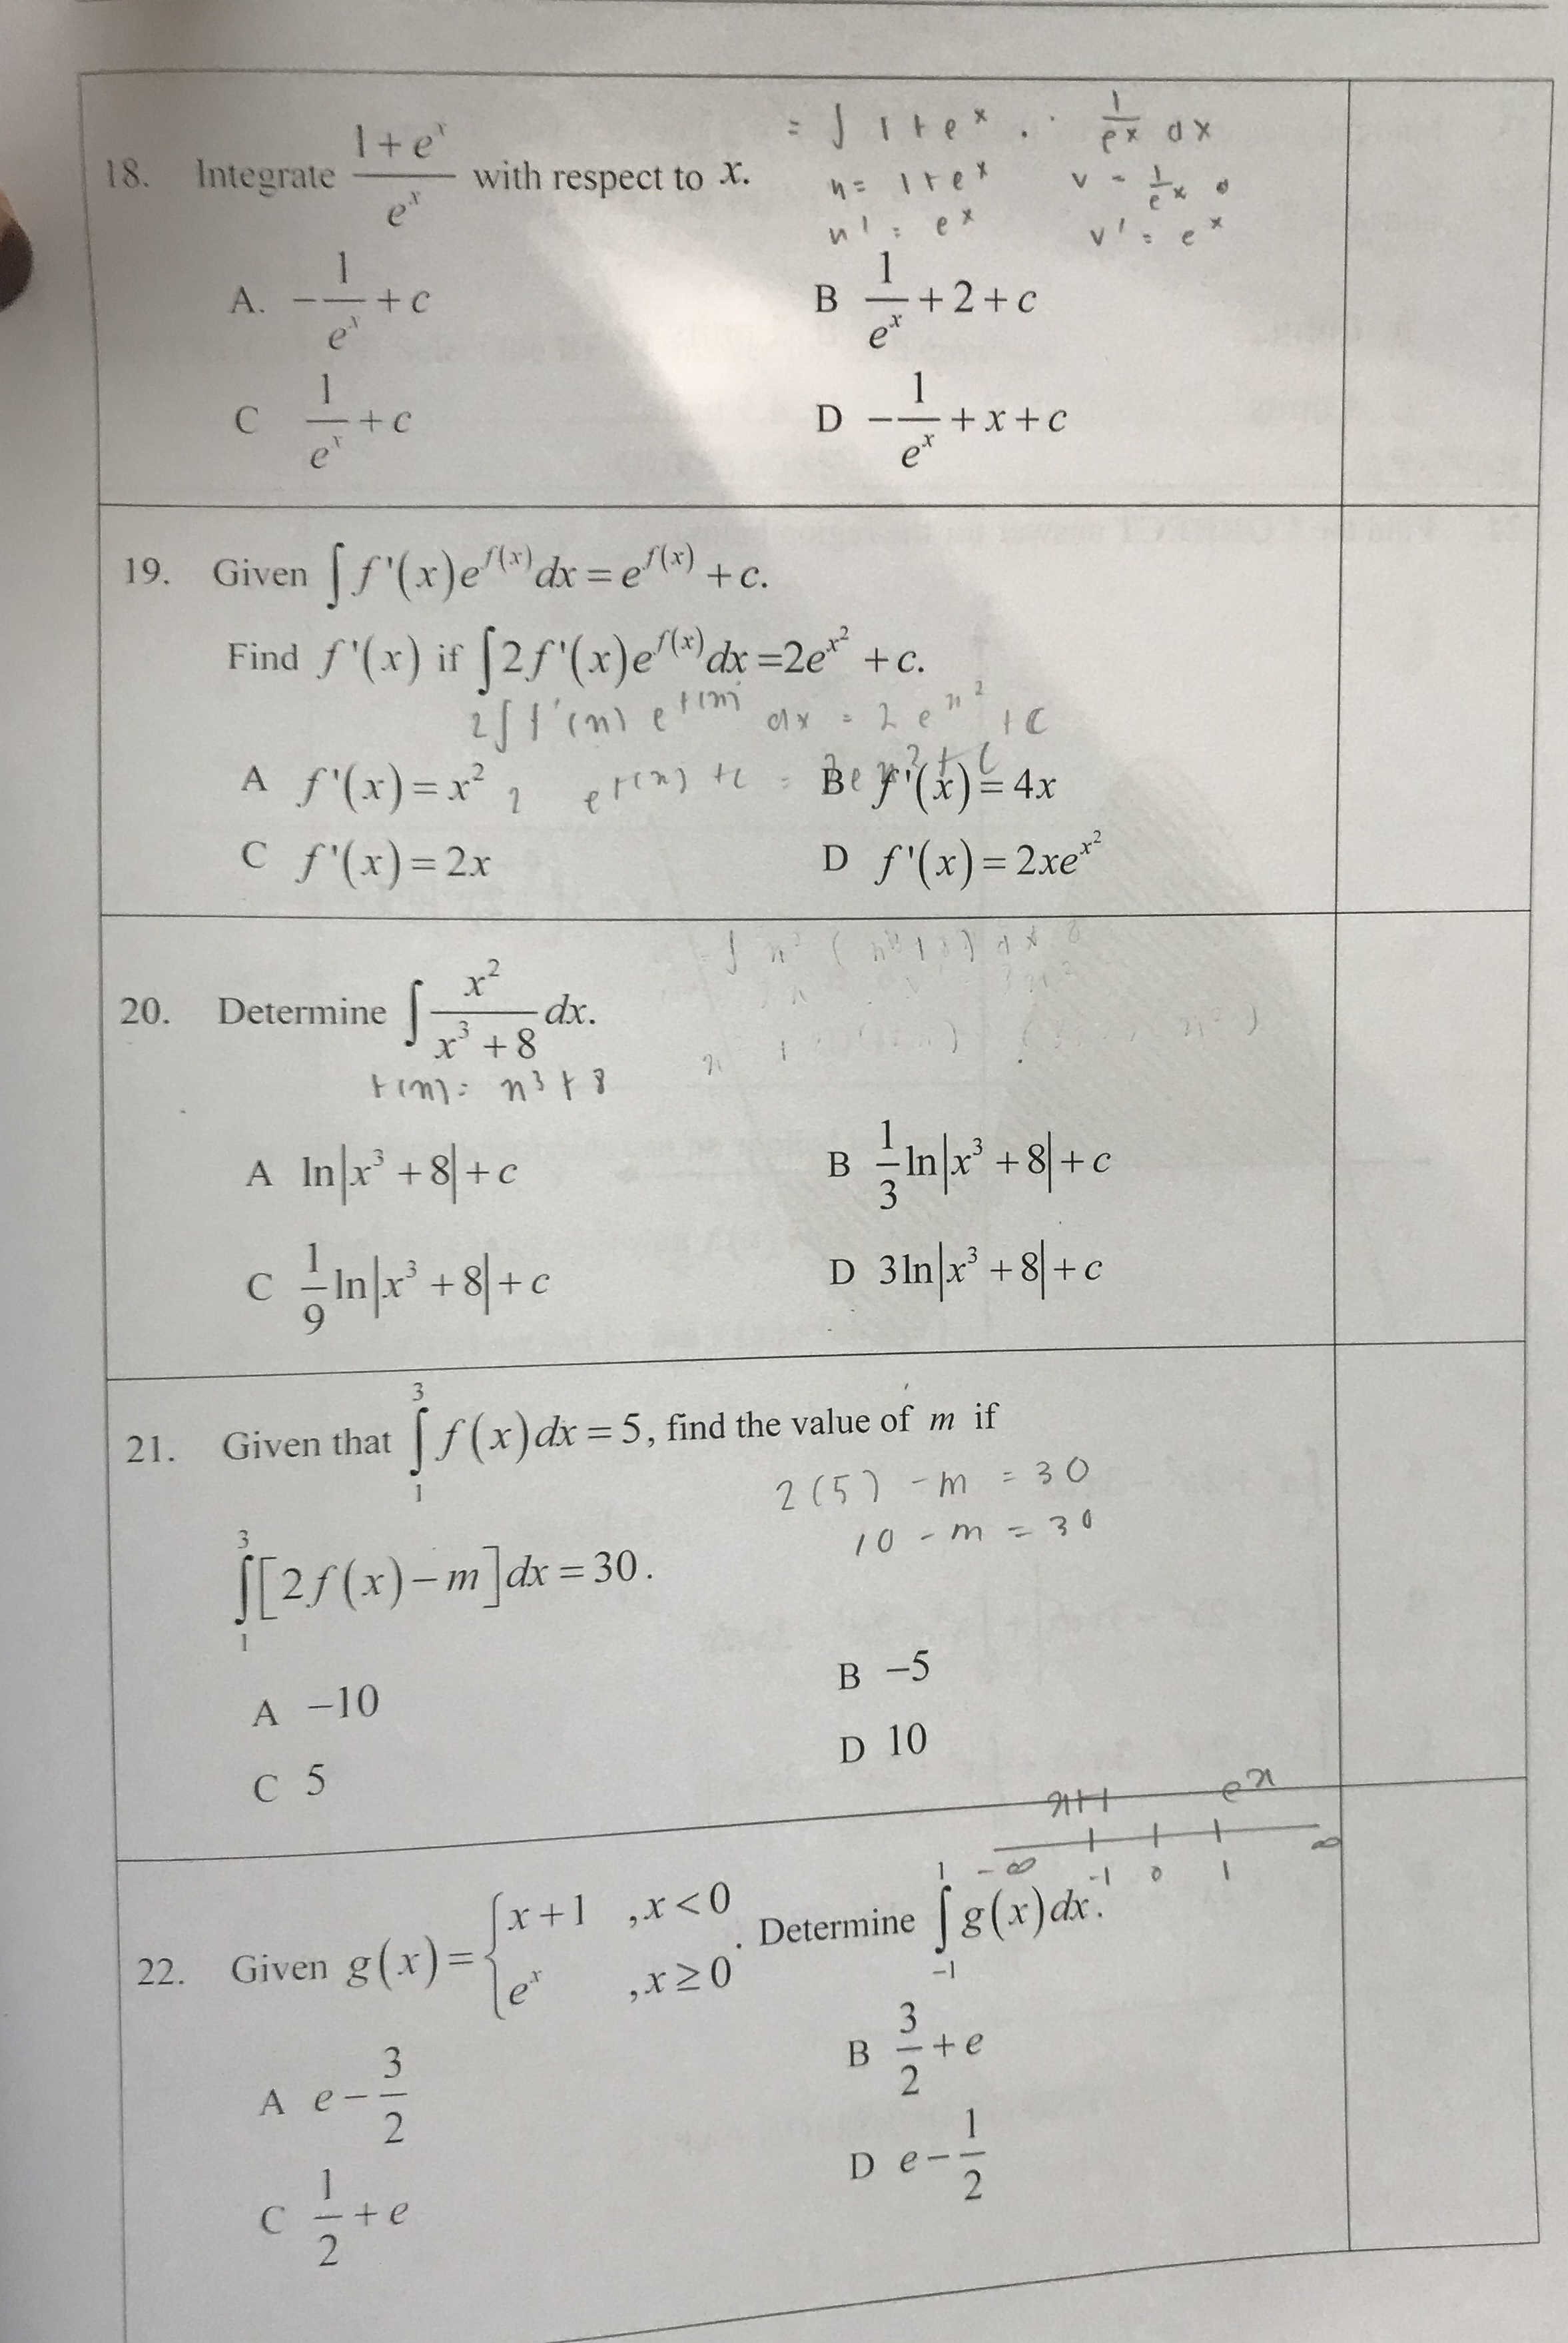 18. Integrate (1+e^x)/e^x with respect to x.
= ∫ 1 + e^x . 1/e^x dx
u = 1 + e^x v = 1/e^x
u' = e^x v' = e^x
A. -1/e^x + c
B 1/e^x + 2 + c
C 1/e^x + c
D -1/e^x + x + c
19. Given ∫ f'(x)e^f(x) dx = e^f(x) + c.
Find f'(x) if ∫ 2f'(x)e^f(x) dx = 2e^x² + c.
2∫ f'(x) e^f(x) dx = 2e^x² + c
A f'(x) = x²
2 e^f(x) + c = 2e^x² + c
B f'(x) = 4x
C f'(x) = 2x
D f'(x) = 2xe^x²
20. Determine ∫ x²/(x³+8) dx.
f(x) = x³ + 8
A ln|x³ + 8| + c
B 1/3 ln|x³ + 8| + c
C 1/9 ln|x³ + 8| + c
D 3ln|x³ + 8| + c
21. Given that ∫₁³ f(x)dx = 5, find the value of m if
2(5) - m = 30
10 - m = 30
∫₁³ [2f(x) - m]dx = 30.
A -10
B -5
C 5
D 10
x+1 e^x
-∞ -1 0 1 ∞
22. Given g(x) = { x+1 , x<0
e^x , x≥0 . Determine ∫₋₁¹ g(x)dx.
A e - 3/2
B 3/2 + e
C 1/2 + e
D e - 1/2